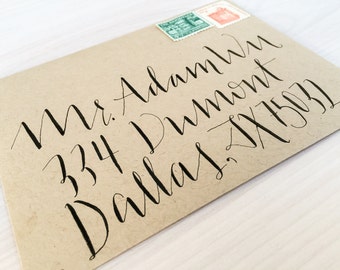 Mr. Adam Wu
334 Dumont
Dallas, TX 75031